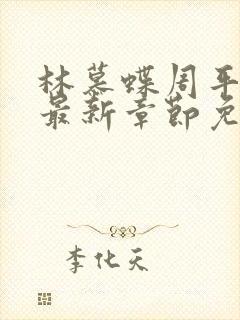 林慕蝶周平
最新章节免
李化天